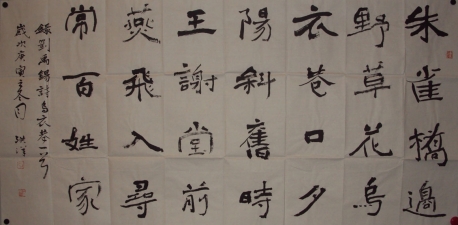 朱雀橋邊
野草花烏
衣巷口夕
陽斜舊時
王謝堂前
燕飛入尋
常百姓家
錄劉禹錫詩烏衣巷一首
歲次庚寅